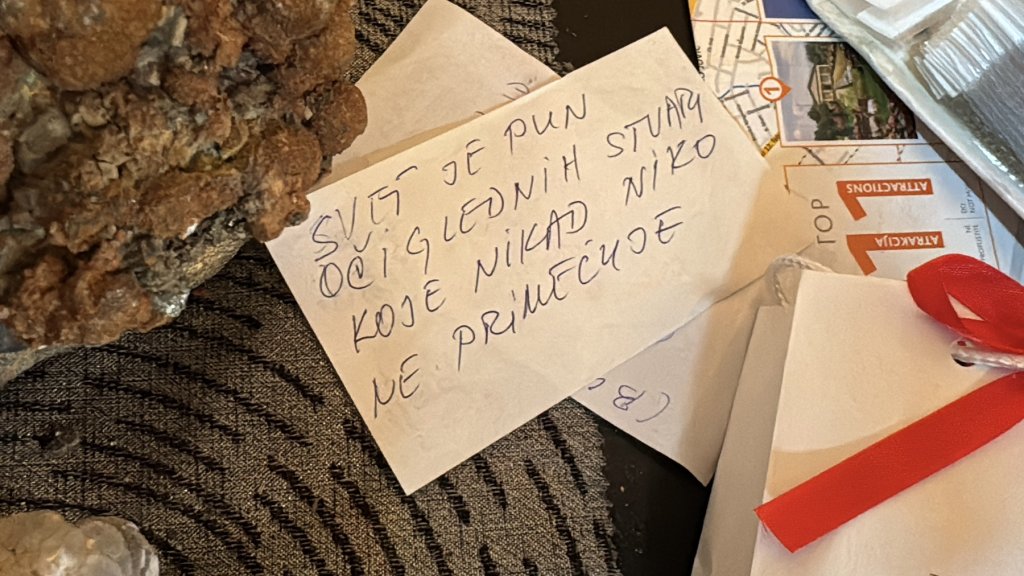 SVET JE PUN
OČIGLEDNIH STVARI
KOJE NIKAD NIKO
NE PRIMEĆUJE
(B
1
TOP
11
ATTRACTIONS
ATRAKCIJA